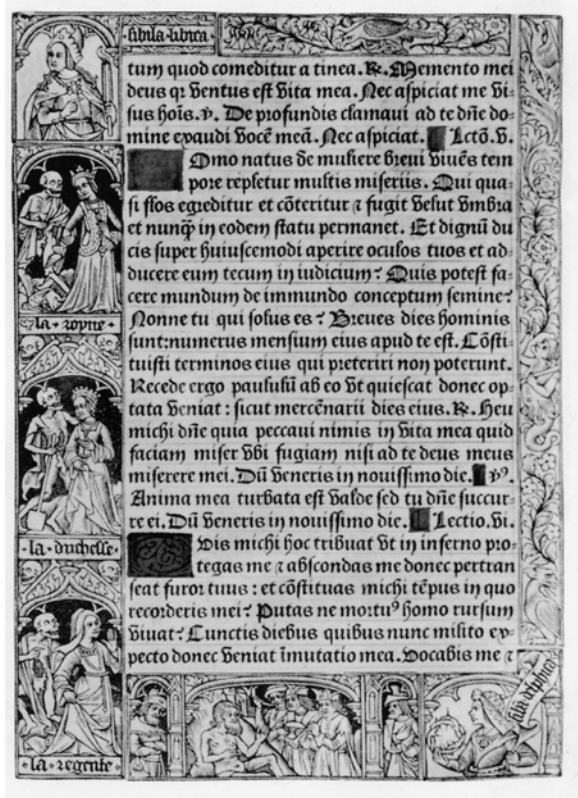 sibila libica
tum quod comeditur a tinea. ℟. Memento mei
deus qꝛ ventus est vita mea. Nec aspiciat me vi-
sus hoīs. ℣. De profundis clamaui ad te dn̄e do-
mine exaudi vocē meā. Nec aspiciat. Lctō. v.
Omo natus de muliere breui viuēs tem
pore repletur multis miseriis. Qui qua-
si flos egreditur et cōteritur ⁊ fugit velut vmbra
et nunq̄ in eodem statu permanet. Et dignū du
cis super huiuscemodi aperire oculos tuos et ad-
ducere eum tecum in iudicium? Quis potest fa-
cere mundum de immundo conceptum semine?
Nonne tu qui solus es? Breues dies hominis
sunt:numerus mensium eius apud te est. Cōsti-
tuisti terminos eius qui preteriri non poterunt.
Recede ergo paululū ab eo vt quiescat donec op-
tata veniat: sicut mercēnarii dies eius. ℟. Heu
michi dn̄e quia peccaui nimis in vita mea quid
faciam miser vbi fugiam nisi ad te deus meus
miserere mei. Dū veneris in nouissimo die. v⁹.
Anima mea turbata est valde sed tu dn̄e succur-
re ei. Dū veneris in nouissimo die. Lectio. vi.
vis michi hoc tribuat vt in inferno pro-
tegas me ⁊ abscondas me donec pertran
seat furor tuus: et cōstituas michi tēpus in quo
recorderis mei? Putas ne mortu⁹ homo rursum
viuat? Cunctis diebus quibus nunc milito ex-
pecto donec veniat īmutatio mea. Vocabis me ⁊
la royne
la duchesse
la regente